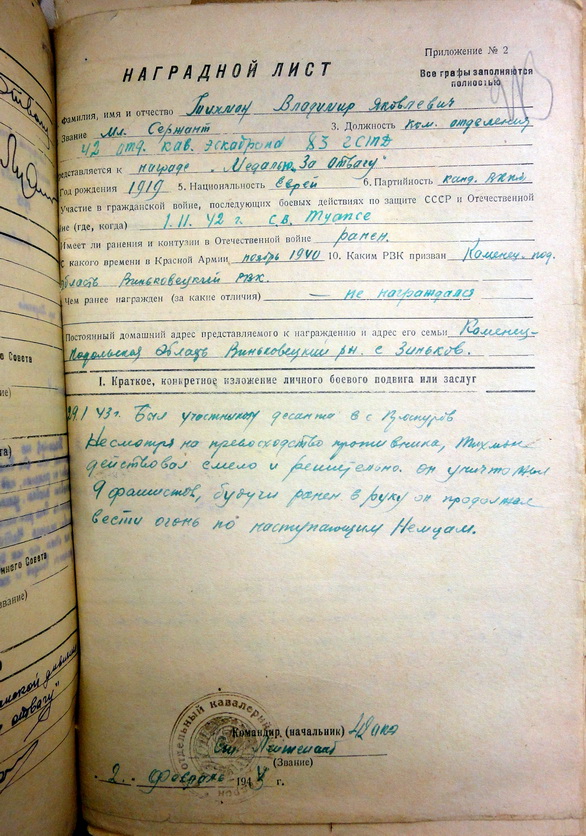 Приложение № 2
НАГРАДНОЙ ЛИСТ
Все графы заполняются
полностью
Фамилия, имя и отчество Тихман Владимир Яковлевич
Звание Мл. Сержант 3. Должность ком. отделения
42 отд. кав. эскадрона 83 гСПД
представляется к награде „Медалью За отвагу"
Год рождения 1919 5. Национальность Еврей 6. Партийность канд. ВКПб
Участие в гражданской войне, последующих боевых действиях по защите СССР и Отечественной
не (где, когда) 1.11.42 г. с.в. Туапсе
Имеет ли ранения и контузии в Отечественной войне ранен.
С какого времени в Красной Армии ноябрь 1940 10. Каким РВК призван Каменец-под.
область Виньковецкий рвк.
Чем ранее награжден (за какие отличия) — не награждался
Постоянный домашний адрес представляемого к награждению и адрес его семьи Каменец-
Подольская Область Виньковецкий рн. с Зиньков.
I. Краткое, конкретное изложение личного боевого подвига или заслуг
29.1 43г. Был участником десанта в с
Несмотря на превосходство противника, Тихман
действовал смело и решительно. он уничтожил
9 фашистов, будучи ранен в руку он продолжал
вести огонь по наступающим Немцам.
Командир (начальник)
Ст. Лейтенант
(Звание)
2. Февраль 194 г.
отдельный кавалерий